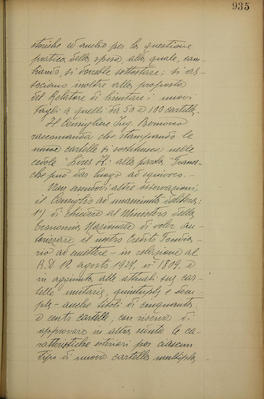 935
storiche ed anche per la questione
pratica della spesa alla quale, cam-
biando, si dovrebbe sottostare; si as-
sociano inoltre alla proposta
del Relatore di limitare i nuovi
tagli a quelli da 50 e 100 cartelle.
Il Consigliere Ing. Bemma
raccomanda che stampando le
nuove cartelle si sostituisca nelle
cedole "Lires It." alla parola "francs"
che può dar luogo ad equivoco.
Non essendovi altre osservazioni,
il Consiglio ad unanimità delibera:
1º) di chiedere al Ministero della
Economia Nazionale di voler au-
torizzare il nostro Credito Fondia-
rio ad emettere - in relazione al
R.D. 12 agosto 1927, nº 1809, e
in aggiunta alle attuali sue car-
telle unitarie, quintuple e decu-
ple - anche titoli di cinquanta
e cento cartelle, con riserva di
approvare in altra seduta le ca-
ratteristiche esteriori per ciascun
tipo di nuova cartella multipla.